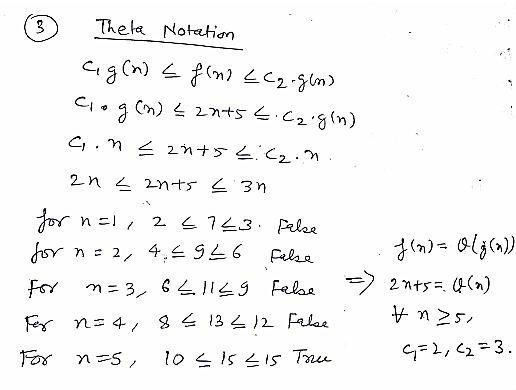 ③ Theta Notation
C₁ g(n) ≤ f(n) ≤ C₂ . g(n)
C₁ . g(n) ≤ 2n+5 ≤ . C₂ . g(n)
C₁ . n ≤ 2n+5 ≤ . C₂ . n
2n ≤ 2n+5 ≤ 3n
for n=1, 2 ≤ 7 ≤ 3 . False
for n=2, 4 ≤ 9 ≤ 6 False
For n=3, 6 ≤ 11 ≤ 9 False
For n=4, 8 ≤ 13 ≤ 12 False
For n=5, 10 ≤ 15 ≤ 15 True
f(n) = θ(g(n))
⇒ 2n+5 = θ(n)
∀ n ≥ 5,
C₁=2, C₂=3.